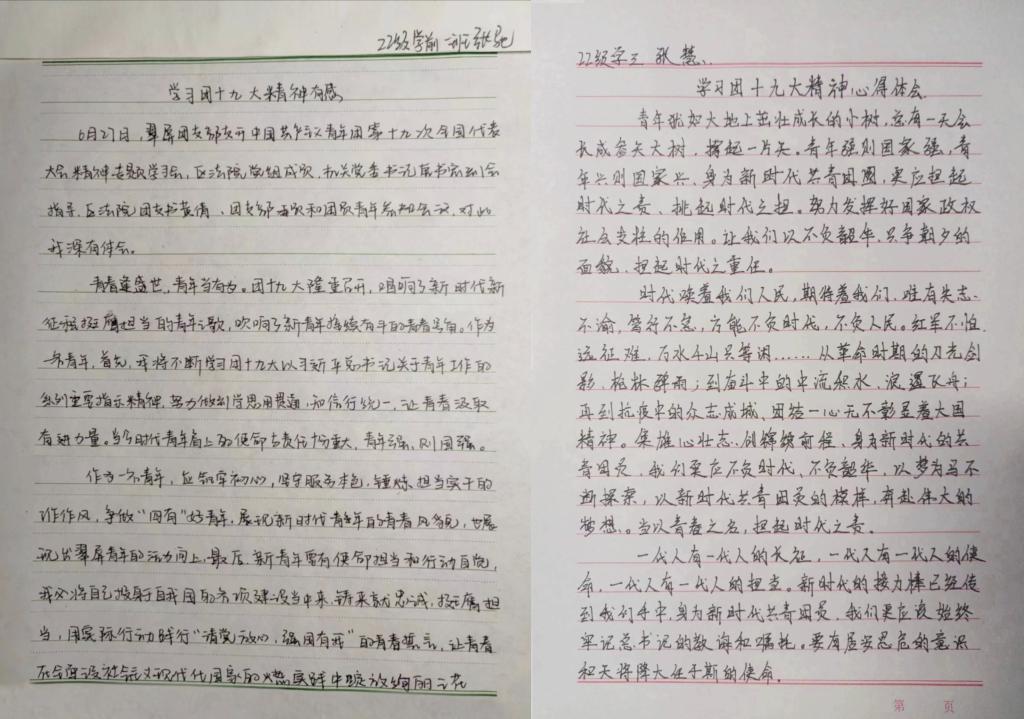 22级学前一班张
学习团十九大精神有感
6月27日,翠屏团支部召开中国共产主义青年团第十九次全国代表
大会精神专题学习会,区法院党组成员,机关党委书记
指导,区法院团支书黄倩、团支部委员和团员青年参加会议,对此
我深有体会。
青春逢盛世,青年当有为。团十九大隆重召开,唱响了新时代新
征程挺膺担当的青年之歌,吹响了新青年接续奋斗的青春号角。作为
一名青年,首先,我将不断学习团十九大以习近平总书记关于青年工作的
系列重要指示精神,努力做到学思用贯通,知信行统一,让青春汲取
奋进力量。当今时代青年肩上的使命与责任扬重大,青年强,则国强。
作为一名青年,应牢牢初心,坚守服务本色,锤炼担当实干的
工作作风,争做“四有”好青年,展现新时代青年的青春风貌,也展
现出翠屏青年的活力向上,最后,新青年要有使命担当和行动自觉,
我必将自己投身于我国的各项建设当中来,铸就忠诚,挺膺担
当,用实际行动践行“请党放心,强国有我”的青春誓言,让青春
在全面建设社会主义现代化国家的火热实践中绽放绚丽之花
22级学三 张慧
学习团十九大精神心得体会
青年犹如大地上茁壮成长的小树,总有一天会
长成参天大树,撑起一片天。青年强则国家强,青
年兴则国家兴、身为新时代共青团团,更应担起
时代之责、挑起时代之担。努力发挥好国家政权
社会支柱的作用。让我们以不负韶华,只争朝夕的
面貌,担起时代之重任。
时代淡着我们人民,期待着我们,唯有矢志
不渝,笃行不怠,方能不负时代,不负人民。红军不怕
远征难,万水千山只等闲……从革命时期的刀光剑
影、枪林弹雨;到奋斗中的中流积水,浪遏飞舟;
再到抗疫中的众志成城、团结一心无不彰显着大国
精神。集雄心壮志、创锦绣前程、身为新时代的共
青团员,我们更应不负时代,不负韶华,以梦为马不
断探索,以新时代共青团员的模样,奔赴伟大的
梦想。当以青春之名,担起时代之责。
一代人有一代人的长征,一代人有一代人的使
命,一代人有一代人的担当。新时代的接力棒已经传
到我们手中,身为新时代共青团员,我们更应该始终
牢记总书记的教诲和嘱托。要有居安思危的意识
和天将降大任于斯的使命.
第 页